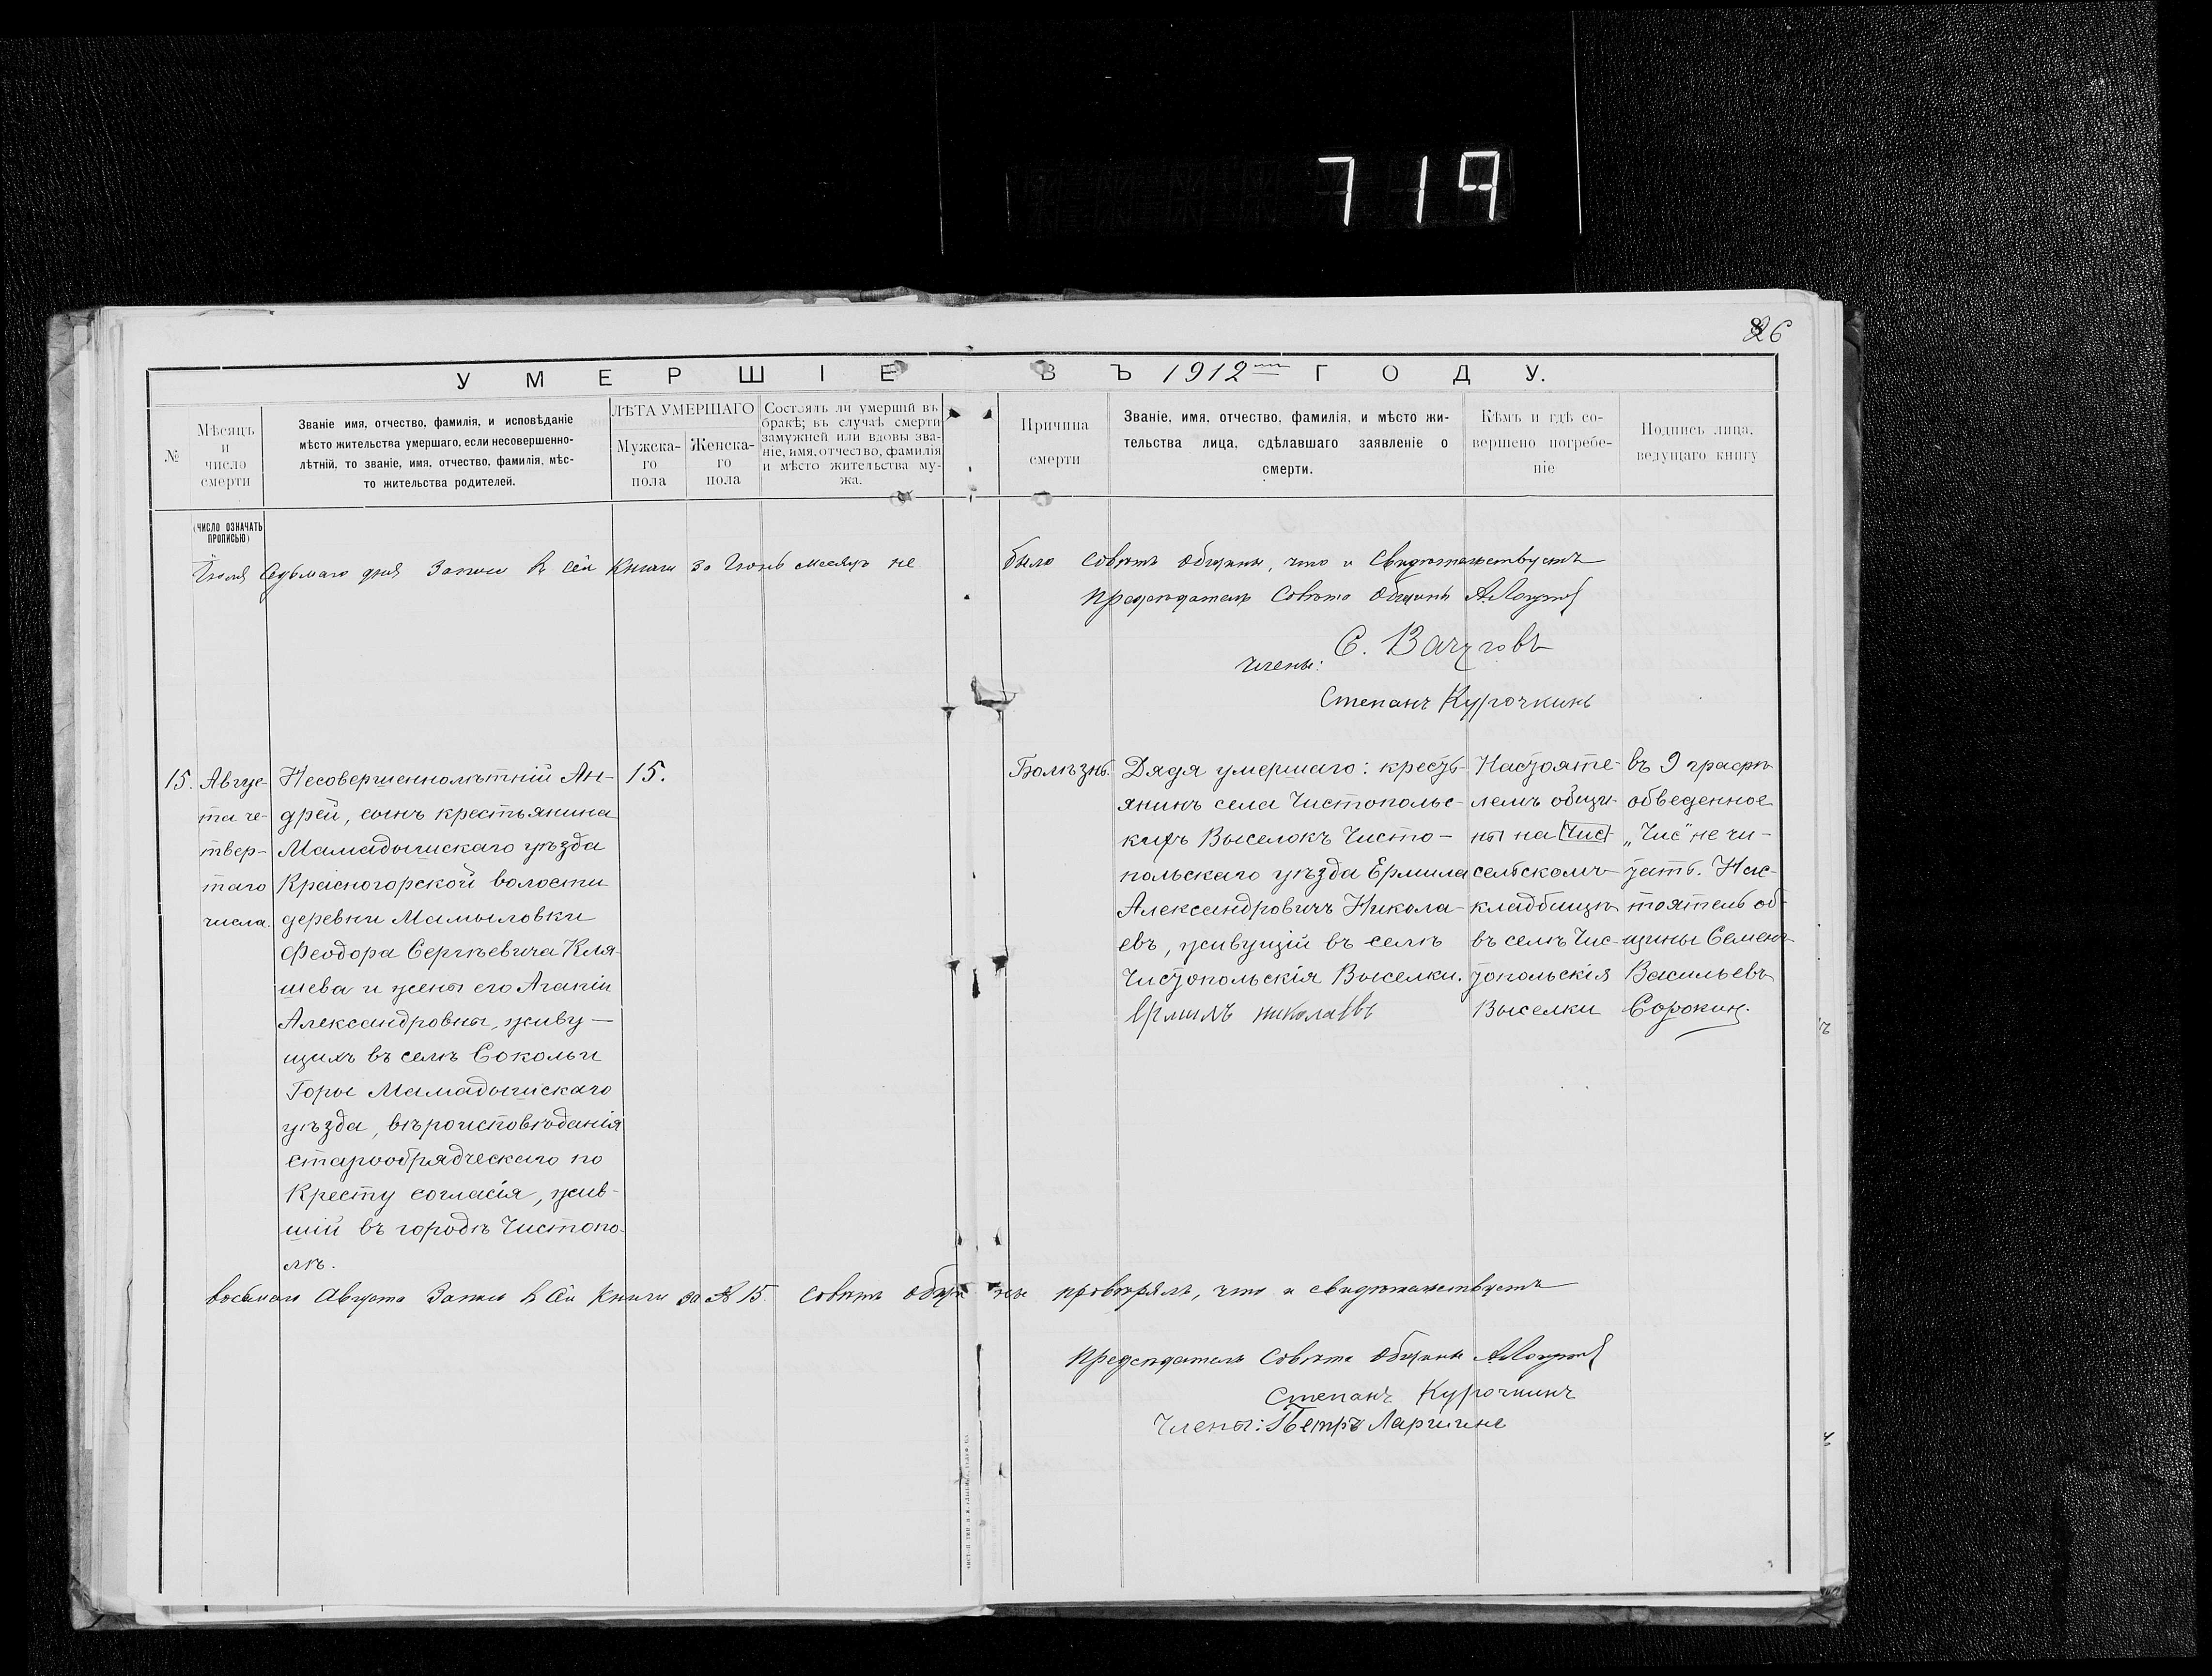 719
26
УМЕРШІЕ ВЪ 1912 ГОДУ.
№
Мѣсяцъ
и
число
смерти
Званіе имя, отчество, фамилія, и исповѣданіе
мѣсто жительства умершаго, если несовершенно-
лѣтній, то званіе, имя, отчество, фамилія, мѣс-
то жительства родителей.
ЛѢТА УМЕРШАГО
Мужска-
го
пола
Женска-
го
пола
Состоялъ ли умершій въ
бракѣ; въ случаѣ смерти
замужней или вдовы зва-
ніе, имя, отчество, фамилія
и мѣсто жительства му-
жа.
Причина
смерти
Званіе, имя, отчество, фамилія, и мѣсто жи-
тельства лица, сдѣлавшаго заявленіе о
смерти.
Кѣмъ и гдѣ со-
вершено погребе-
ніе
Подпись лица,
ведущаго книгу
(ЧИСЛО ОЗНАЧАТЬ
ПРОПИСЬЮ)
Іюля Седьмаго дня Записи в сей Книги за Іюнь месяцъ не было Советъ Общины, что и Свидѣтельствуетъ
Предсѣдатель Совѣта Общины
С. Вачуговъ
Члены:
Степанъ Курочкинъ
15.
Авгус-
та че-
твер-
таго
числа.
Несовершеннолѣтній Ан-
дрей, сынъ крестьянина
Мамадышскаго уѣзда
Красногорской волости
деревни Мамыловки
Феодора Сергѣевича Кля-
шева и жены его Агапіи
Александровны, живу-
щихъ въ селѣ Сокольи
Горы Мамадышскаго
уѣзда, вѣроисповѣданія
старообрядческаго по
Кресту согласія, жив-
шій въ городѣ Чистопо-
лѣ.
15.
Болѣзнь.
Дядя умершаго: кресть-
янинъ села Чистопольс-
кихъ Выселокъ Чисто-
польскаго уѣзда Ермила
Александровичъ Никола-
евъ, живущій въ селѣ
Чистопольскія Выселки.
Ермилъ николаевъ
Настояте-
лемъ общи-
ны на Чис
сельскомъ
кладбищѣ
въ селѣ Чис-
топольскія
Выселки
въ 9 графѣ
обведенное
„Чис" не чи-
тать. Нас-
тоятель об-
щины Семенъ
Васильевъ
Сорокинъ.
восьмаго Августа Записи в Сей Книги за № 15. Советъ Общины провѣрялъ, что и свидѣтельствуетъ
Предсѣдатель Совѣта Общины
Степанъ Курочкинъ
Члены: Петръ Ларишне